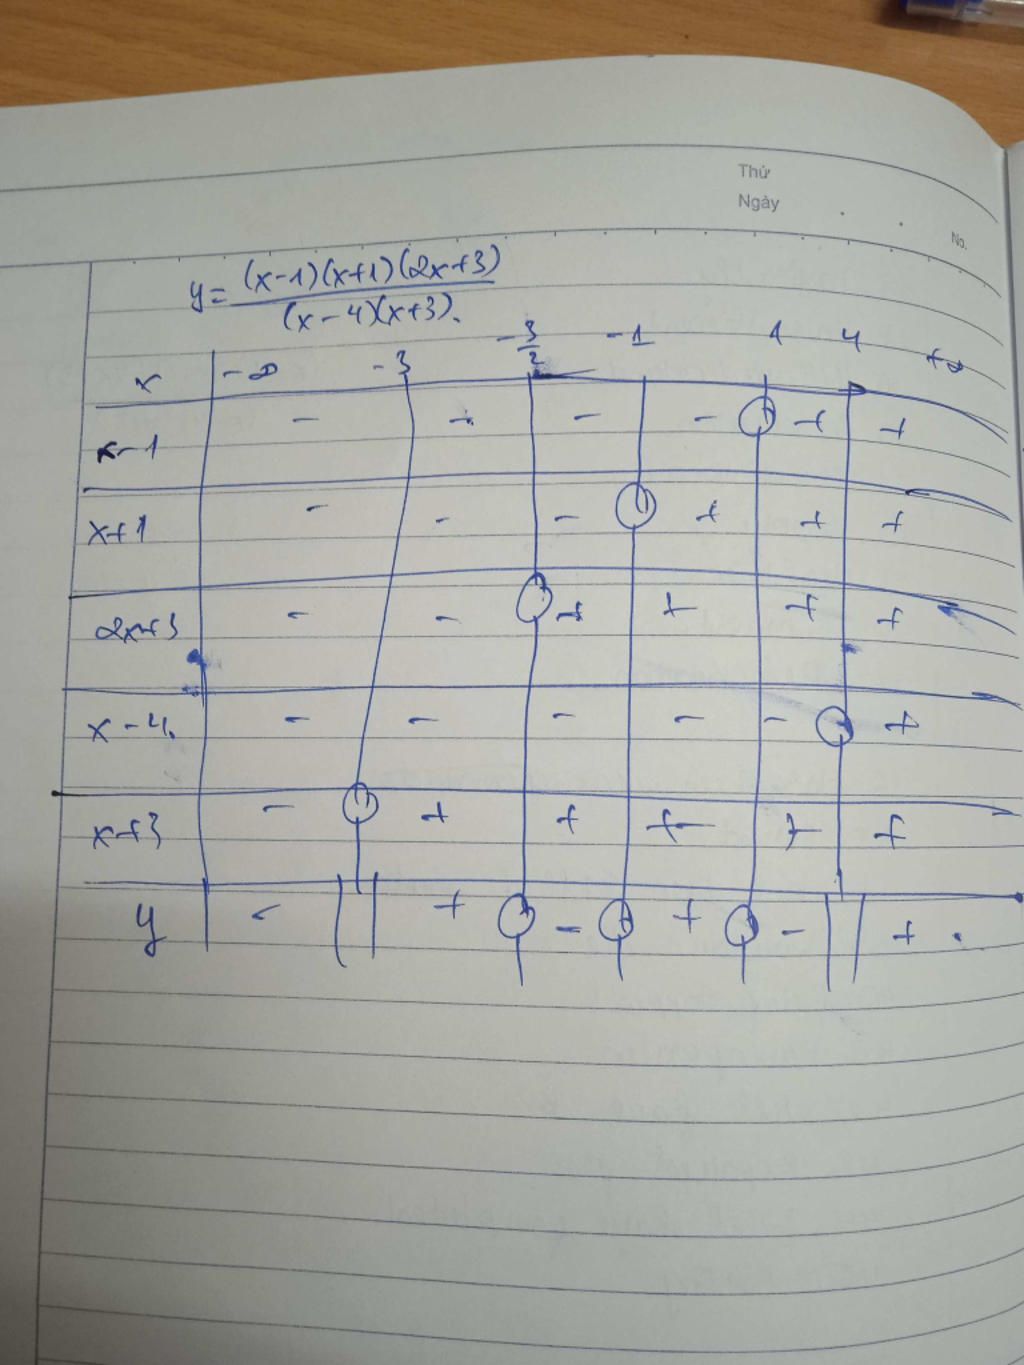 Thứ
Ngày
No.
y = (x-1)(x+1)(2x+3)
(x-4)(x+3).
x -∞ -3 -3/2 -1 1 4 +∞
x-1 - - - - + +
x+1 - - - + + +
2x+3 - - + + + +
x-4. - - - - - +
x+3 - + + + + +
y - || + - + - || + .